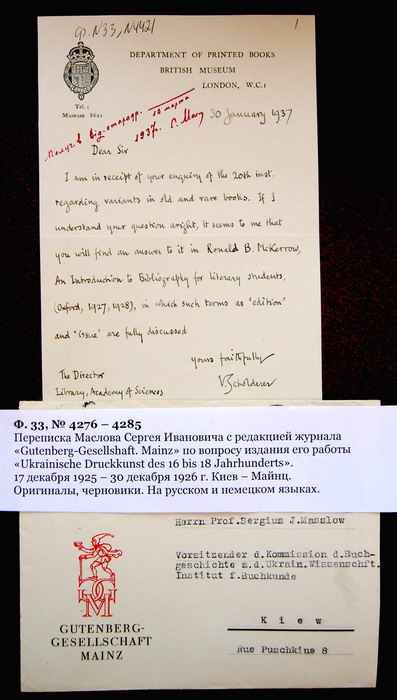 Ф. N33, N4421
1
DEPARTMENT OF PRINTED BOOKS
BRITISH MUSEUM
LONDON, W.C.1
Tel.:
Museum 8621
30 January 1937
10 марта
1937. С. Масл
Dear Sir
I am in receipt of your enquiry of the 20th inst.
regarding variants in old and rare books. If I
understand your question aright, it seems to me that
you will find an answer to it in Ronald B. McKerrow,
An Introduction to Bibliography for literary students,
(Oxford, 1927, 1928), in which such terms as 'edition'
and 'issue' are fully discussed
Yours faithfully
V. Scholderer
The Director
Library, Academy of Sciences
Ф. 33, № 4276 – 4285
Переписка Маслова Сергея Ивановича с редакцией журнала
«Gutenberg-Gesellshaft. Mainz» по вопросу издания его работы
«Ukrainische Druckkunst des 16 bis 18 Jahrhunderts».
17 декабря 1925 – 30 декабря 1926 г. Киев – Майнц.
Оригиналы, черновики. На русском и немецком языках.
Herrn Prof. Sergius J. Masslow
Vorsitzender d. Kommission d. Buch-
geschichte a.d. Ukrain. Wissenschft.
Institut f. Buchkunde
K i e w
Rue Puschkine 8
GUTENBERG-
GESELLSCHAFT
MAINZ